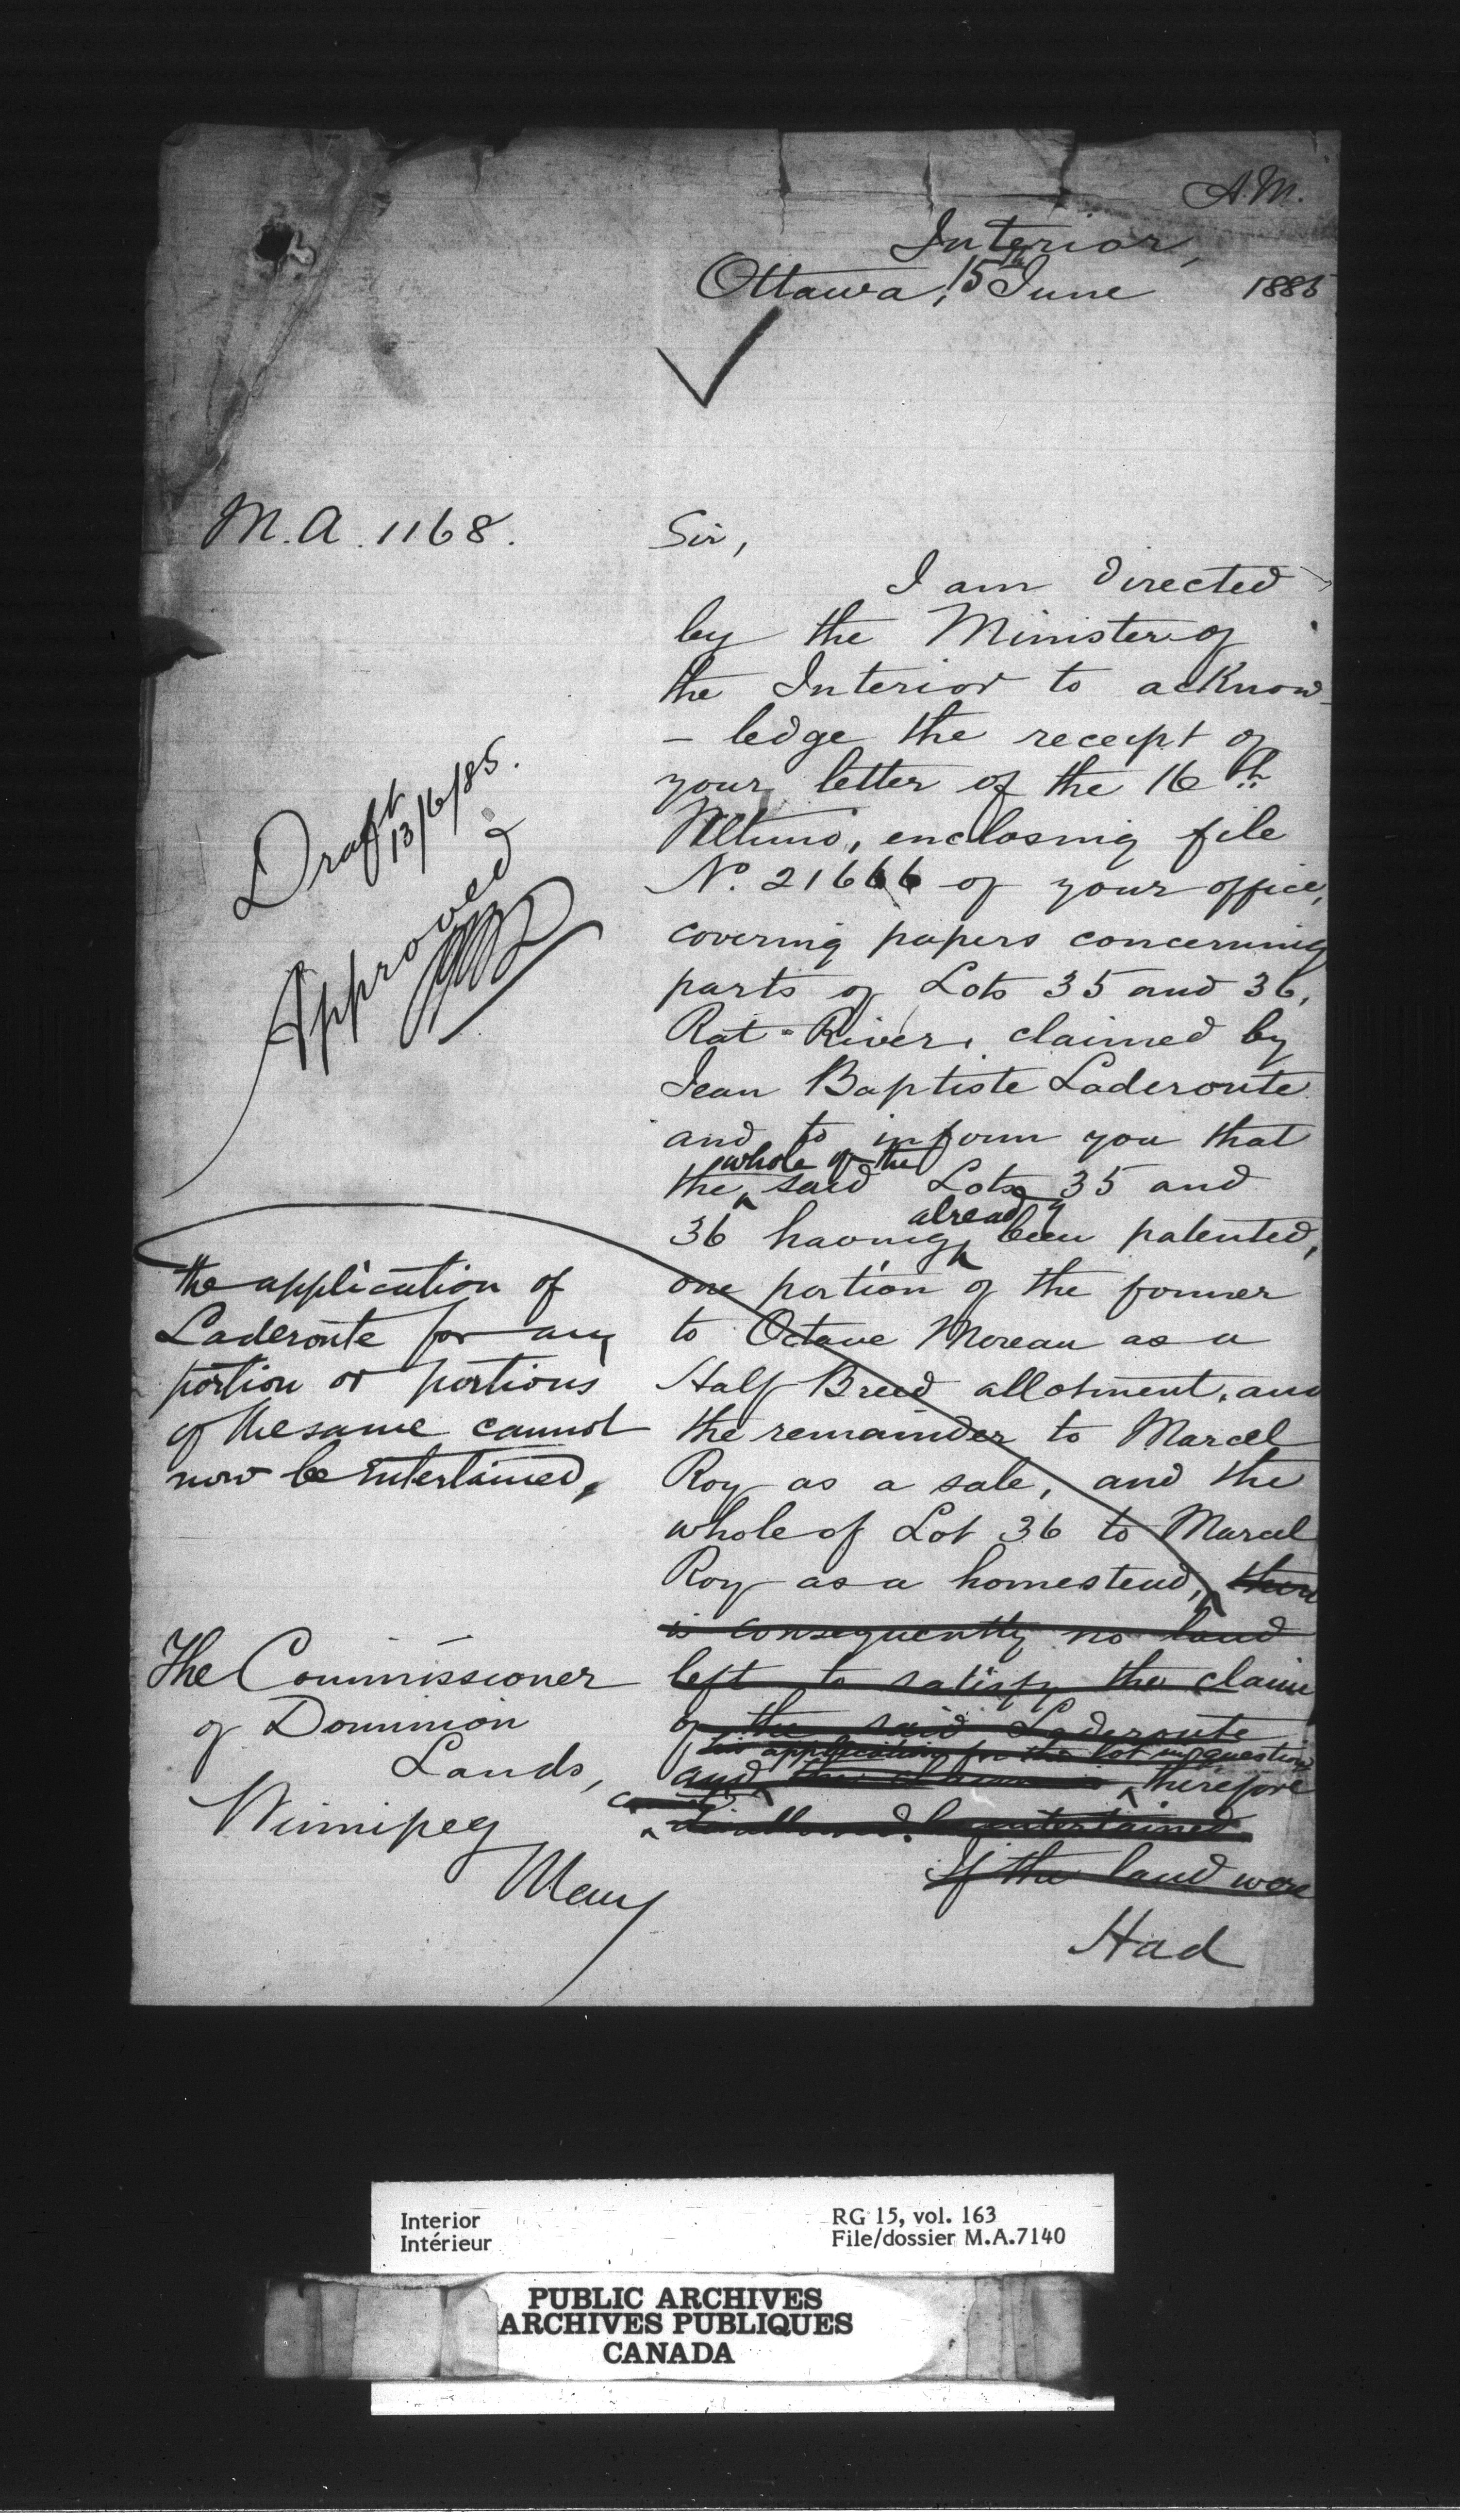 A.M.
Interior,
Ottawa, 15th June 1885
M.A. 1168.
Sir,
I am directed
by the Minister of
the Interior to acknow
- ledge the receipt of
your letter of the 16th
Ultimo, enclosing file
No. 21666 of your office,
covering papers concerning
parts of Lots 35 and 36,
Rat-River, claimed by
Jean Baptiste Laderoute
and to inform you that
whole of the
the said Lots 35 and
already
36 having been patented,
one portion of the former
to Octave Moreau as a
Half Breed allotment, and
the remainder to Marcel
Roy as a sale, and the
whole of Lot 36 to Marcel
Roy as a homestead, there
is consequently no land
left to satisfy the claim
of the said Laderoute
his application for the lot in question
and the claim is therefore
cannot
disallowed. be entertained.
If the land were
Had
Draft
13/6/85.
Approved
the application of
Laderoute for any
portion or portions
of the same cannot
now be entertained,
The Commissioner
of Dominion
Lands,
Winnipeg
Man
Interior
Intérieur
RG 15, vol. 163
File/dossier M.A.7140
PUBLIC ARCHIVES
ARCHIVES PUBLIQUES
CANADA